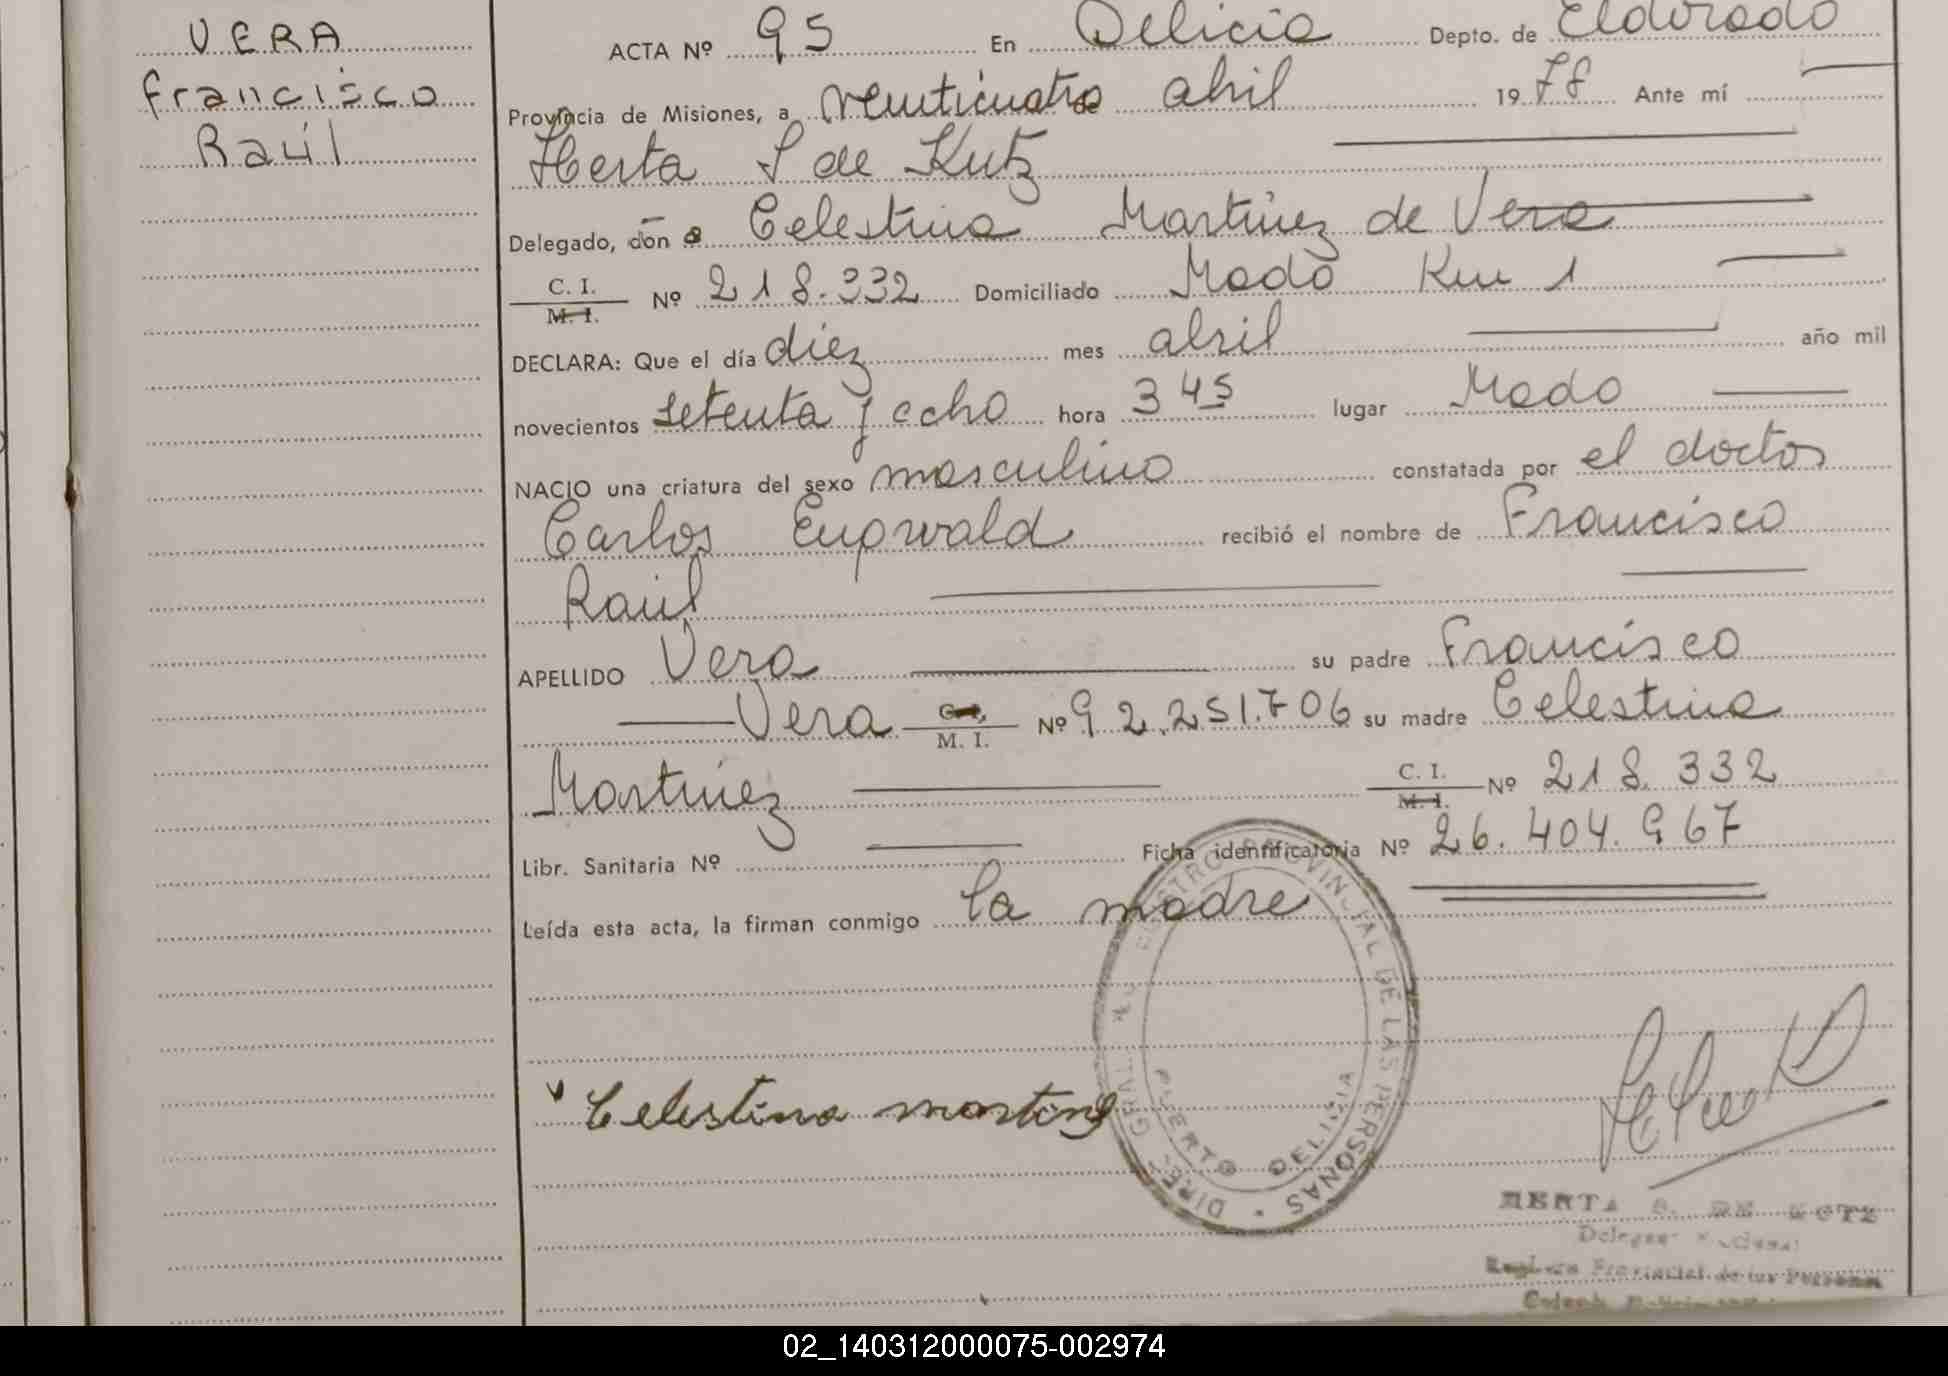 VERA
Francisco
Raúl
ACTA Nº 95 En Delicia Depto. de Eldorado
Provincia de Misiones, a veinticuatro de abril 1978 Ante mí
Herta S de Kutz
Delegado, don a Celestina Martínez de Vera
C. I.
M. I. Nº 218.332 Domiciliado Mado Km 1
DECLARA: Que el día diez mes abril año mil
novecientos setenta y ocho hora 3 45 lugar Mado
NACIO una criatura del sexo masculino constatada por el doctor
Carlos recibió el nombre de Francisco
Raúl
APELLIDO Vera su padre Francisco
Vera C. I. M. I. Nº 92.251.706 su madre Celestina
Martínez C. I. M. I. Nº 218.332
Libr. Sanitaria Nº Ficha identificatoria Nº 26.404.967
Leída esta acta, la firman conmigo la madre
Celestina martine
PROVINCIAL DE LAS PERSONAS
PUERTO DELICIA
HERTA S. DE KUTZ
02_140312000075-002974